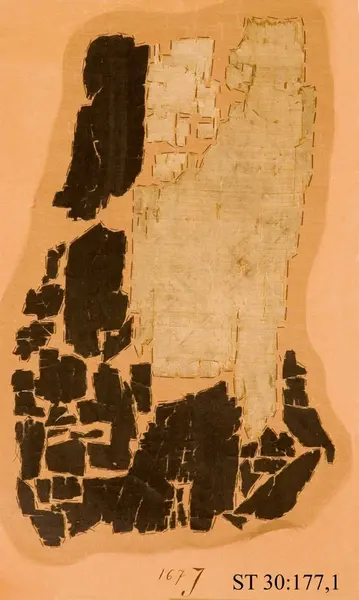 1677
ST 30:177,1